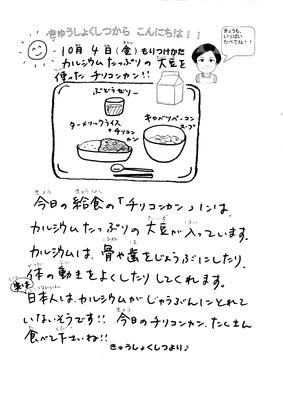 きゅうしょくしつから こんにちは!!
きょうも、
いっぱい
たべてね!!
10月4日(金) もりつけかた
カルシウムたっぷりの「大豆」を
使ったチリコンカン!!
ぶどうゼリー
ターメリックライス
+チリコンカン
キャベツベーコン
スープ
今日の給食の「チリコンカン」には、
カルシウムたっぷりの大豆が入っています。
カルシウムは、骨や歯をじょうぶにしたり、
体の動きをよくしたりしてくれます。
日本人は、カルシウムがじゅうぶんにとれて
いないそうです!! 今日のチリコンカン、たくさん
食べて下さいね!!
きゅうしょくしつより♪